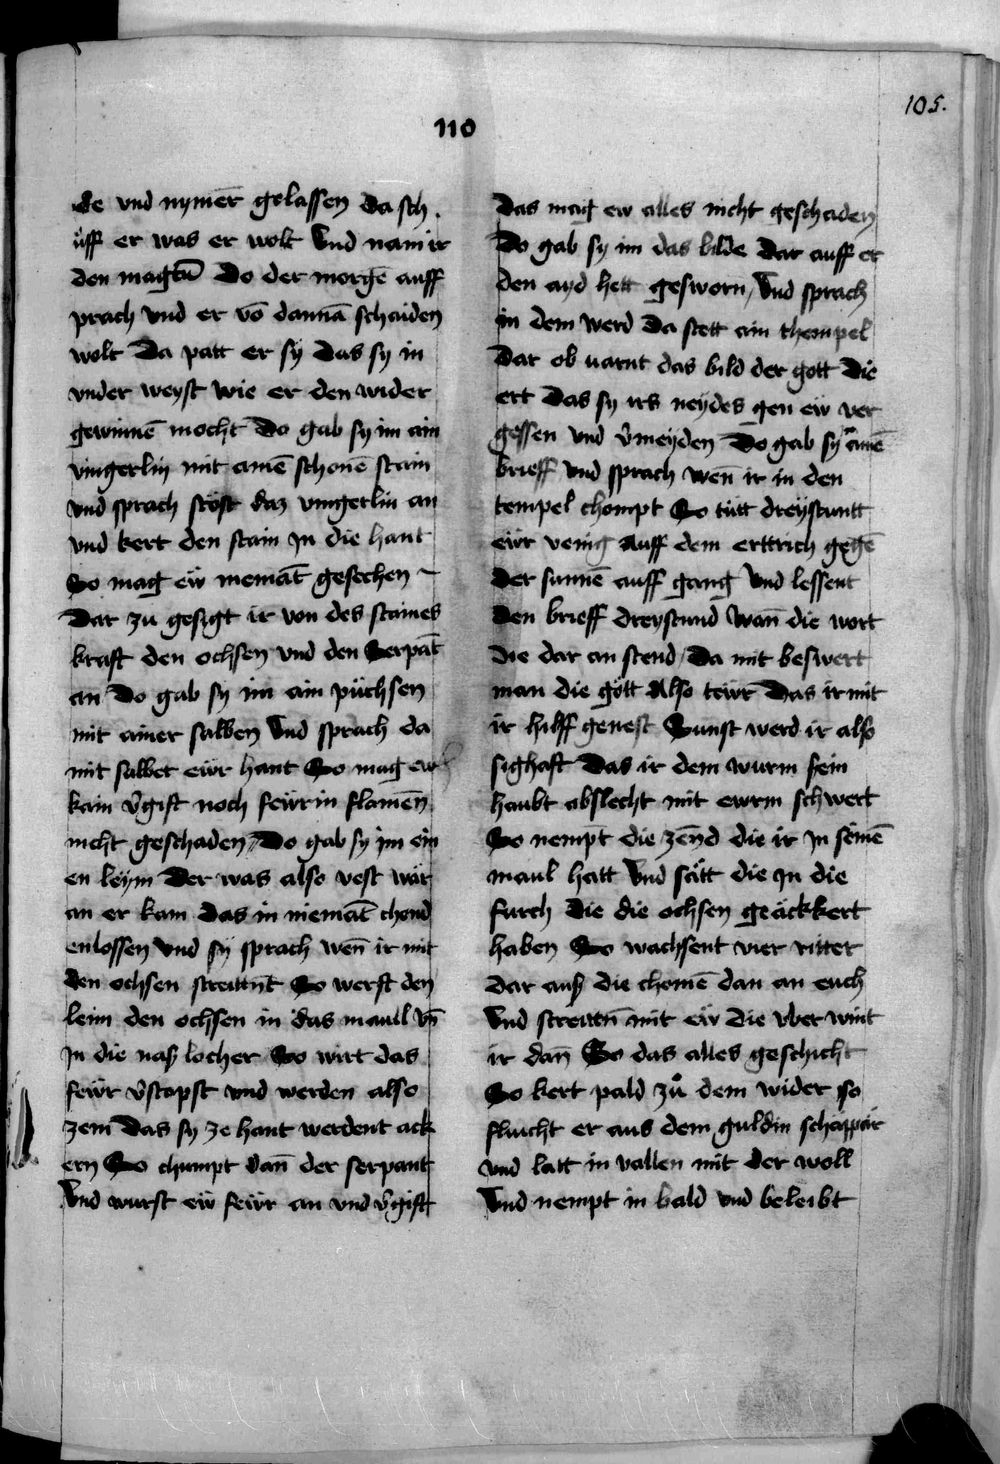 105.
110
de vnd nymer̄ gelassen da sch
üff er was er wolt Vnd nam ir
den magtū Do der morgē auff
prach vnd er vō dannā schaiden
wolt Da patt er sy das sy in
vnder weyst wie er den wider
gewinnē mocht Do gab sy im ain
vingerlin mit ainē schonē stain
vnd sprach stöst daz vingerlin an
vnd kert den stain Jn die hant
So mag eẅ niemāt gesechen ~
Dar zu gesigt ir von des staines
kraft den ochsen vnd den Serpāt
an Do gab sy im ain püchsen
mit ainer salben Vnd sprach da
mit salbet eẅr hant So mag eẅ
kain v̄gift noch feẅrin flamen̄
nicht geschaden Do gab sy im ein
en leÿm Der was also vest wär
an er kam das in niemāt chond
enlossen Vnd sÿ sprach wen̄ ir mit
den ochsen streittn̄t So werft den
leim den ochsen in das maul vn̄
Jn die nasz locher So wirt das
feẅr v̄stopft vnd werden also
zem Das sy ze hant werdent ack
ern So chumpt dan̄ der serpant
Vnd wurft eẅ feẅr an vnd v̄gift
das mag ew alles nicht geschaden
Do gab sy im das bilde dar auff er
den ayd hett gesworn, Vnd sprach
in dem werd Da stett ain thempel
Dar ob varnt das bild der gott Die
ert Das sy irs neydes gen eẅ ver
gessen vnd v̄meyden Do gab sy ainē
brieff vnd sprach wen̄ ir in den
tempel chompt So tütt dreÿstuntt
eẅr venig auff dem erttrich gegē
der sunnē auff gang Vnd lessent
den brieff dreystund Wan̄ die wort
die dar an stend Da mit beswert
man die gött Also teẅr Das ir mit
ir hilff genest Sunst werd ir also
sighaft Das ir dem wurm sein
haubt abslecht mit ewrm schwert
So nempt die zēnd die ir Jn seinē
maul hatt Vnd sätt die Jn die
furch die die ochsen geäckkert
haben So wachsent vier ritter
dar ausz die chomē dan an euch
Vnd streitten̄ mit eẅ Die vber wint
ir dan̄ So das alles geschicht
So kert pald zů dem wider so
fluicht er aus dem guldin schäppär
vnd latt in vallen mit der woll
Vnd nempt in bald vnd beleibt